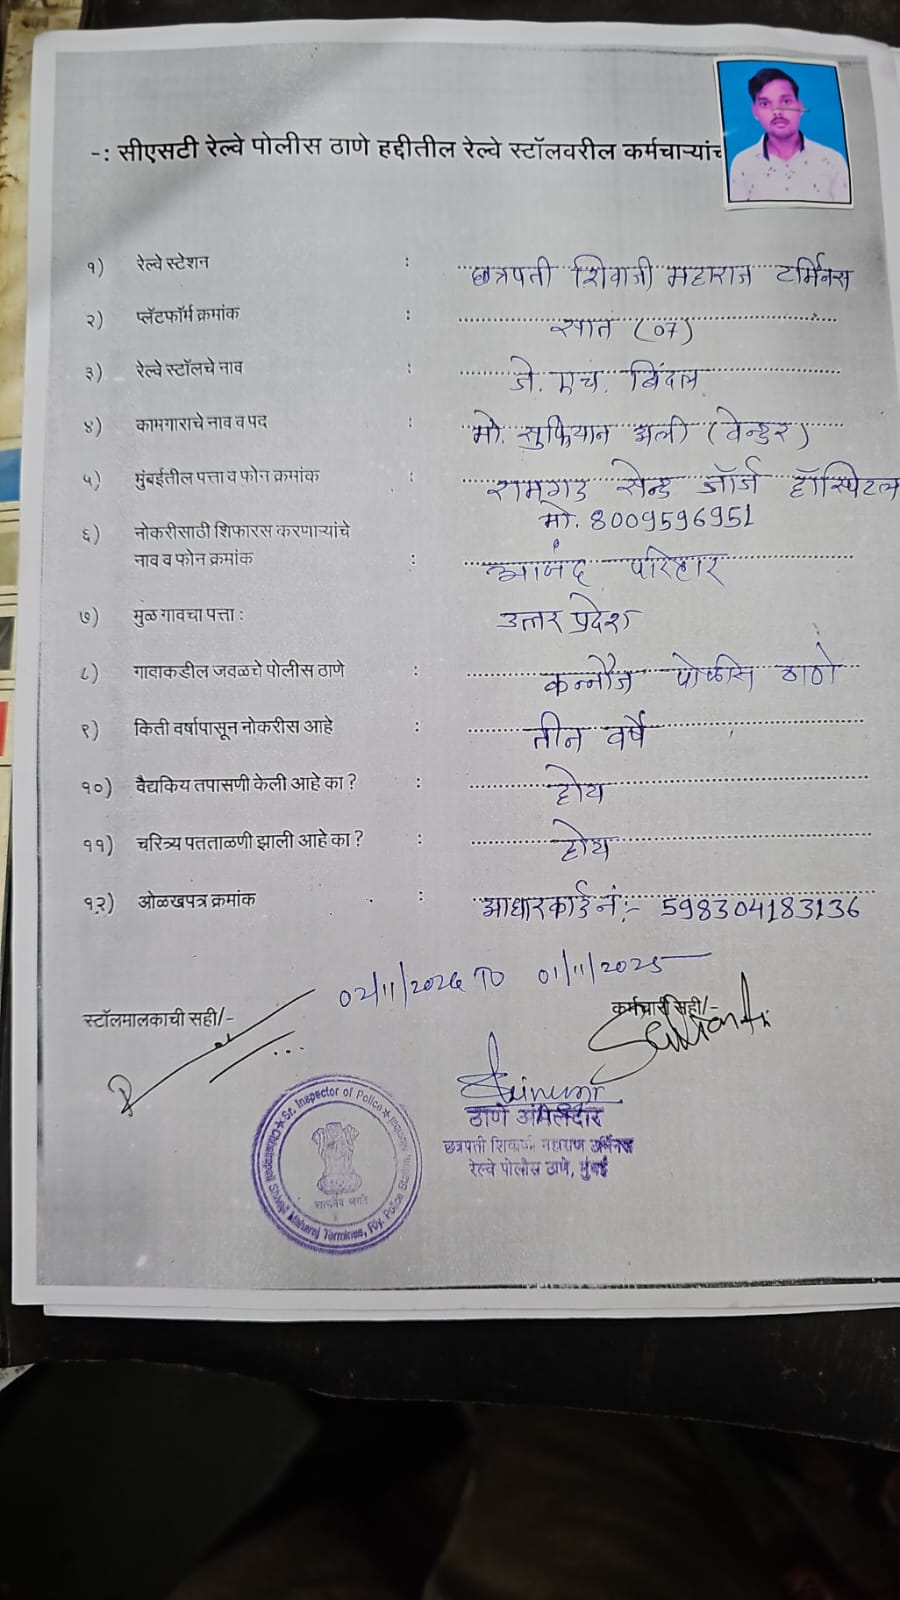 -: सीएसटी रेल्वे पोलीस ठाणे हद्दीतील रेल्वे स्टॉलवरील कर्मचाऱ्यांच
१) रेल्वे स्टेशन : छत्रपती शिवाजी महाराज टर्मिनस
२) प्लॅटफॉर्म क्रमांक : सात (07)
३) रेल्वे स्टॉलचे नाव : जे. एच. बिंदल
४) कामगाराचे नाव व पद : मो. सुफियान अली (वेन्डर)
५) मुंबईतील पत्ता व फोन क्रमांक : रामगड सेन्ट जॉर्ज हॉस्पिटल
मो. 8009596951
६) नोकरीसाठी शिफारस करणाऱ्यांचे
नाव व फोन क्रमांक : आनंद परिहार
७) मुळ गावचा पत्ता : उत्तर प्रदेश
८) गावाकडील जवळचे पोलीस ठाणे : कन्नौज पोलीस ठाणे
९) किती वर्षापासून नोकरीस आहे : तीन वर्षे
१०) वैद्यकिय तपासणी केली आहे का ? : होय
११) चरित्र्य पतताळणी झाली आहे का ? : होय
१२) ओळखपत्र क्रमांक : आधारकार्ड नं:- 598304183136
02/11/2024 TO 01/11/2025
स्टॉलमालकाची सही/- कर्मचारी सही/-
ठाणे अंमलदार
छत्रपती शिवाजी महाराज टर्मिनस
रेल्वे पोलीस ठाणे, मुंबई
Sr. Inspector of Police
Chhatrapati Shivaji Maharaj Terminus, Rly. Police Station, Mumbai
सत्यमेव जयते